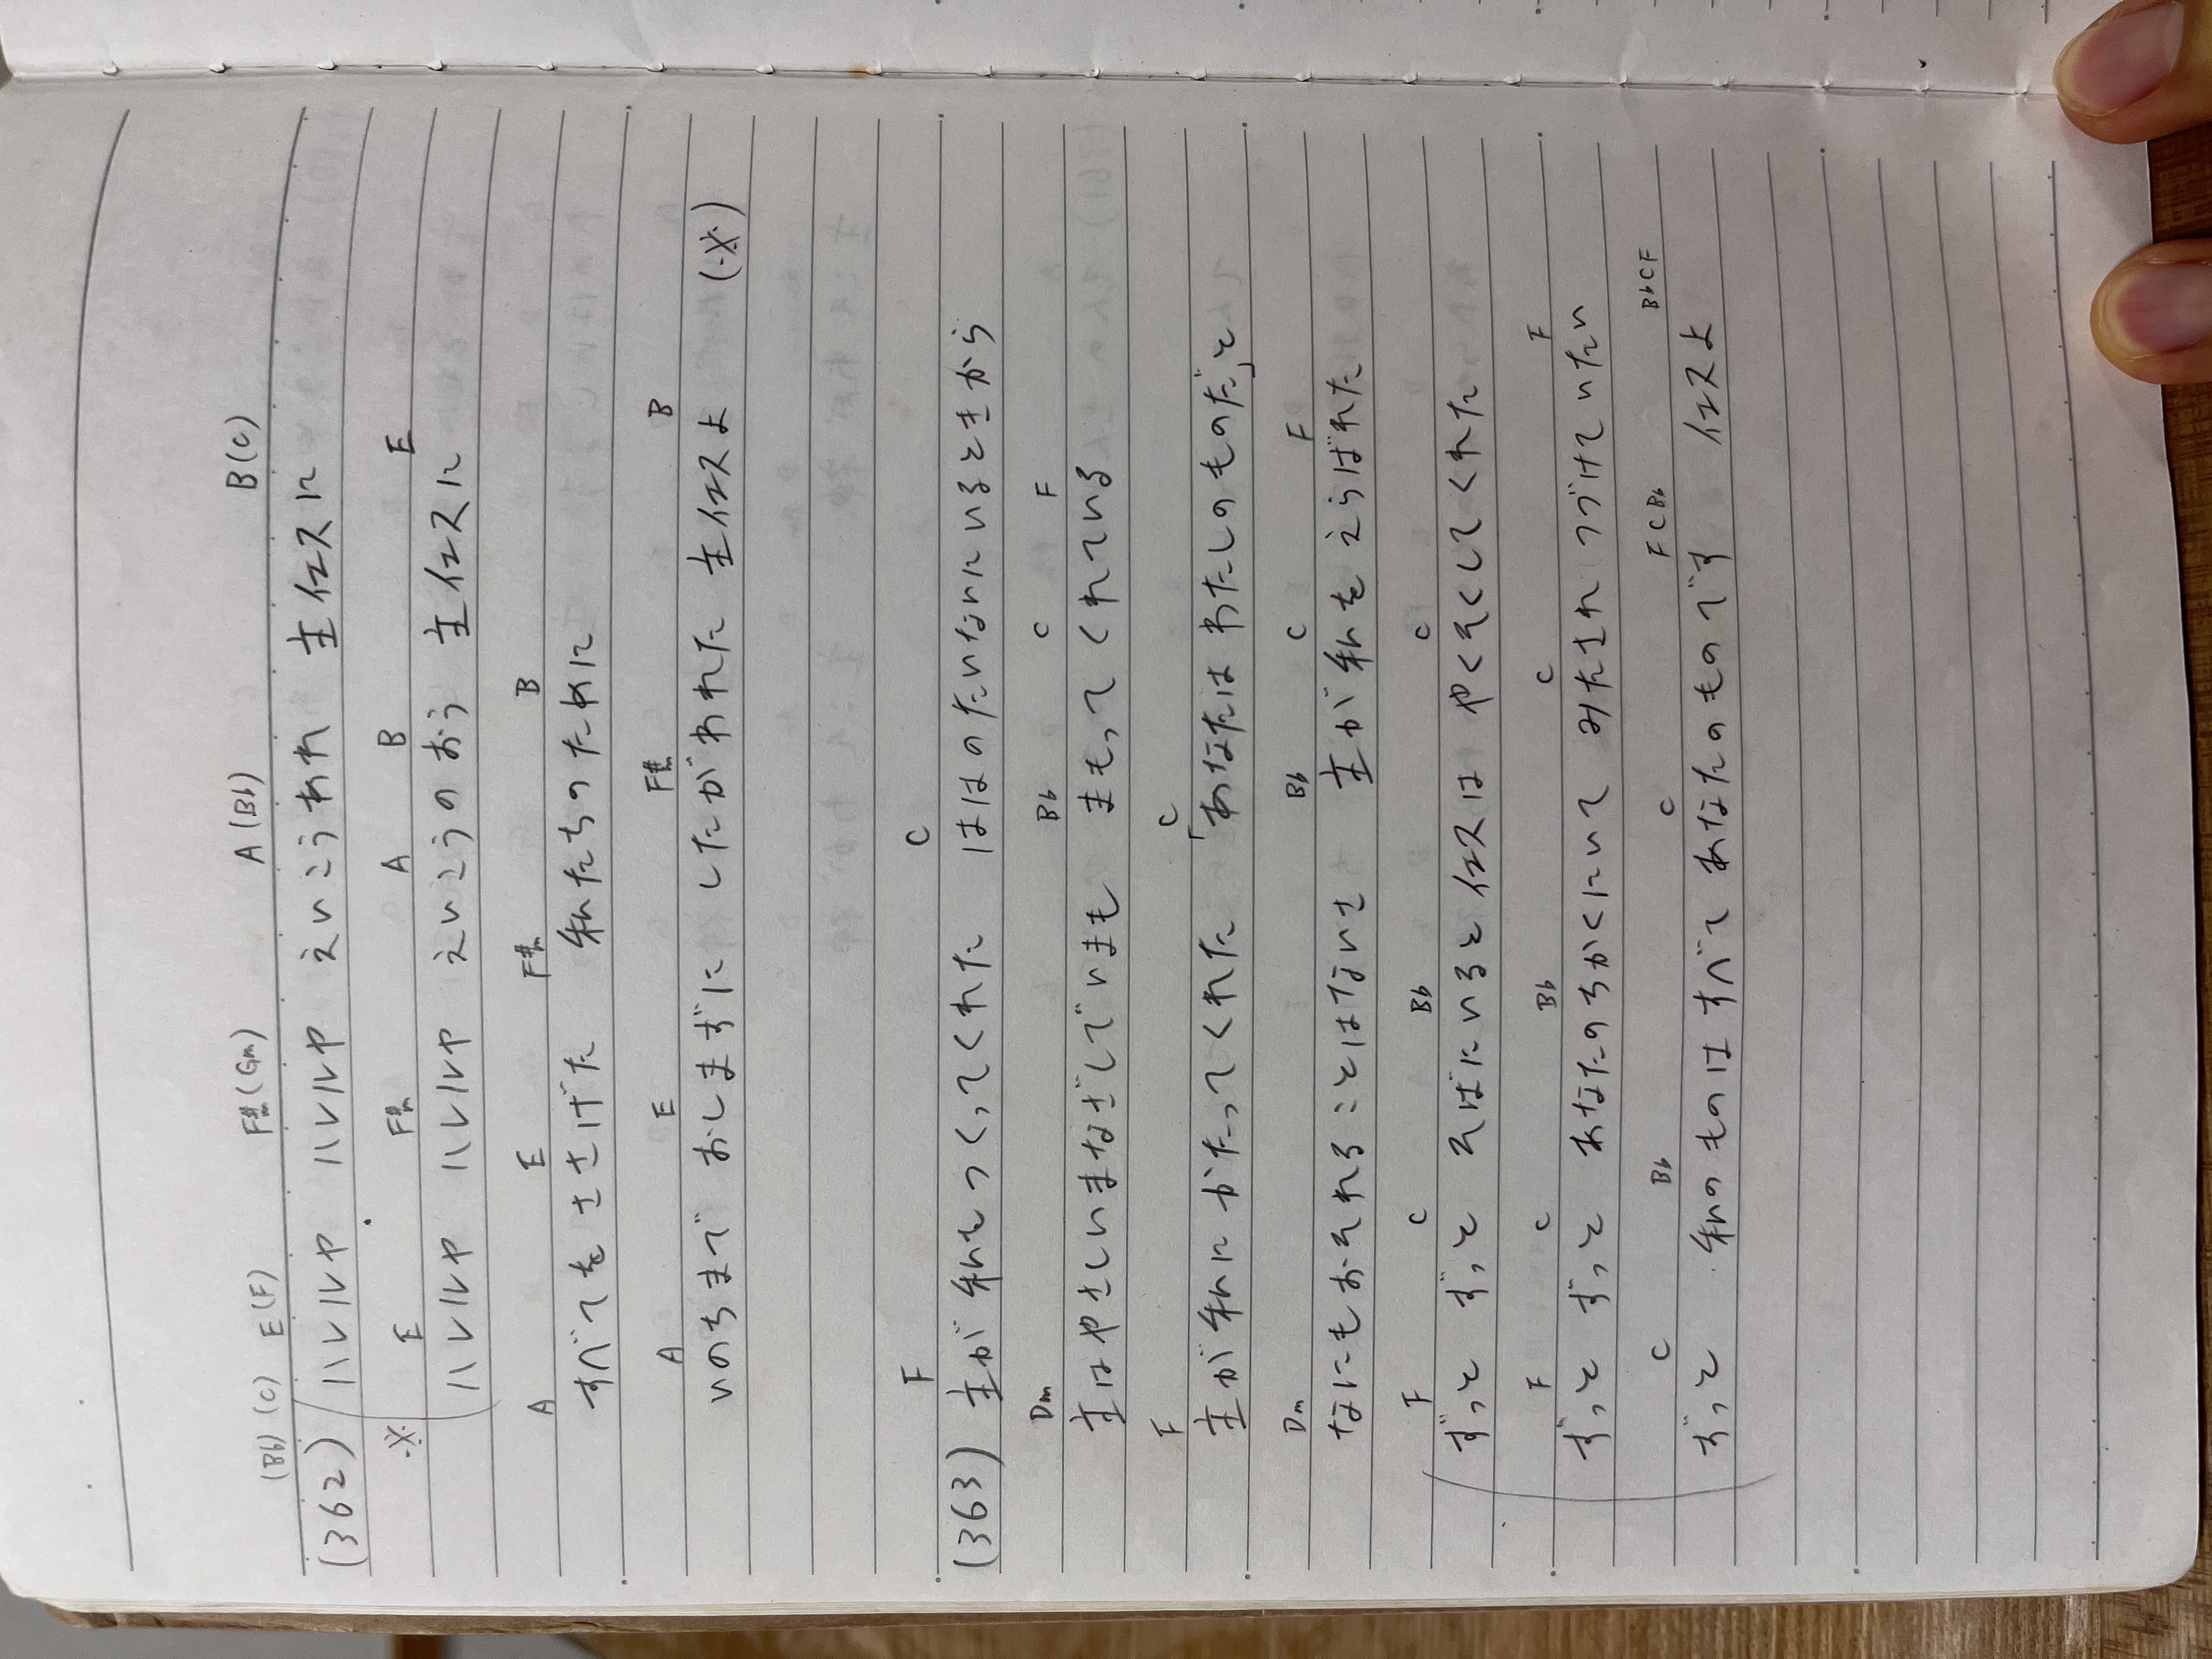 (Bb) (C) E(F) F#m(Gm) A(Bb) B(C)
(362) ハレルヤ ハレルヤ えいこうあれ 主イエスに
※ E F#m A B E
ハレルヤ ハレルヤ えいこうのおう 主イエスに
A E F#m B
すべてをささげた 私たちのために
A E F#m B
いのちまで おしまずに したがわれた 主イエスよ (※)
F C
(363) 主が 私をつくってくれた ははのたいないにいるときから
Dm Bb C F
主はやさしいまなざしでいまも まもってくれている
F C
主が私にかたってくれた 「あなたはわたしのものだ」と
Dm Bb C F
なにもおそれることはないさ 主が私をえらばれた
F C Bb C
ずっと ずっと そばにいるとイエスは やくそくしてくれた
F C Bb C F
ずっと ずっと あなたのちかくにいて みたされつづけていたい
C Bb C F C Bb Bb C F
ずっと 私のものはすべて あなたのものです イエスよ